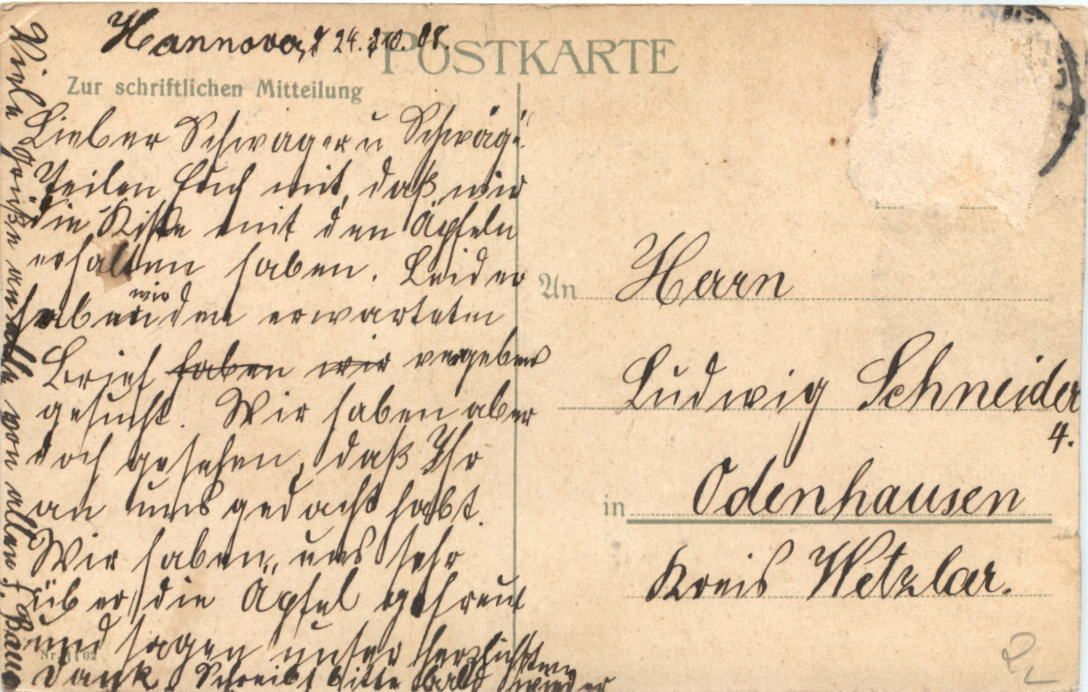 Hannover, d 24.10.08.
POSTKARTE
Zur schriftlichen Mitteilung
Lieber Schwager u Schwäg.
Teilen Euch mit, daß wir
die Kiste mit den Äpfeln
erhalten haben. Leider
haben wir den erwarteten
Brief haben wir vergebens
gesucht. Wir haben aber
doch gesehen, daß Ihr
an uns gedacht habt.
Wir haben uns sehr
über die Äpfel gefreut
und sagen unser herzlichsten
Dank. Schreibt bitte bald wieder
Viele Grüße an alle von allen
An Herrn
Ludwig Schneider
4.
in Odenhausen
Kreis Wetzlar.